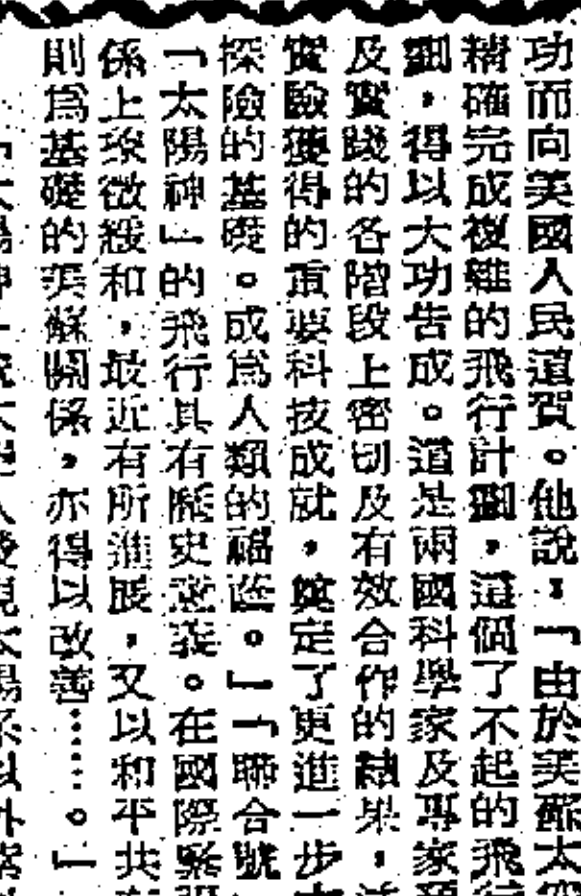 功而向美國人民道賀。他說：「由於美蘇太
精確完成複雜的飛行計劃，這個了不起的飛
劃，得以大功告成。這是兩國科學家及專家
及實踐的各階段上密切及有效合作的結果，
實驗獲得的重要科技成就，奠定了更進一步
探險的基礎。成為人類的福祉。」「聯合號
「太陽神」的飛行具有歷史意義。在國際緊
係上緩和，最近有所進展，又以和平共
則為基礎的美蘇關係，亦得以改善……。」